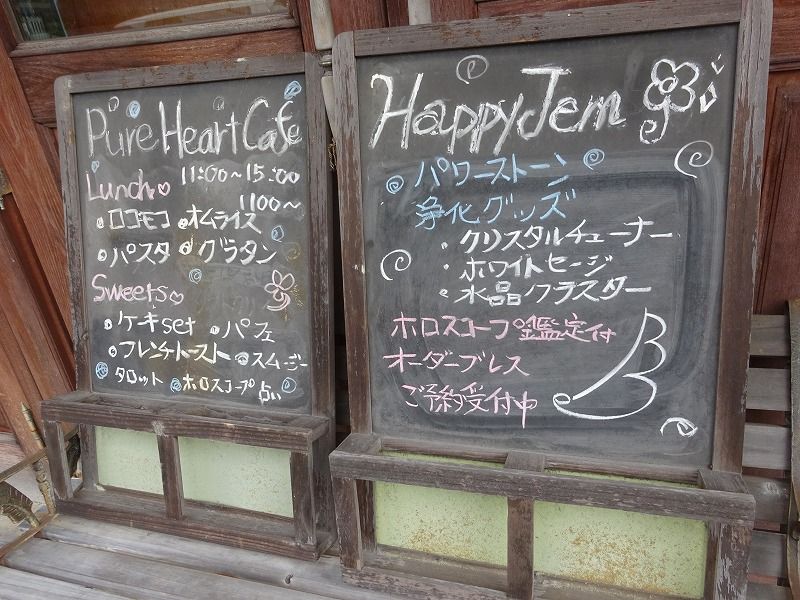 Pure Heart Cafe
Lunch 11:00～15:00
1100～
・ロコモコ ・オムライス
・パスタ ・グラタン
Sweets
・ケーキset ・パフェ
・フレンチトースト ・スムージー
タロット ・ホロスコープ占い
Happy Jem
パワーストーン
浄化グッズ
・クリスタルチューナー
・ホワイトセージ
・水晶クラスター
ホロスコープ鑑定付
オーダーブレス
ご予約受付中